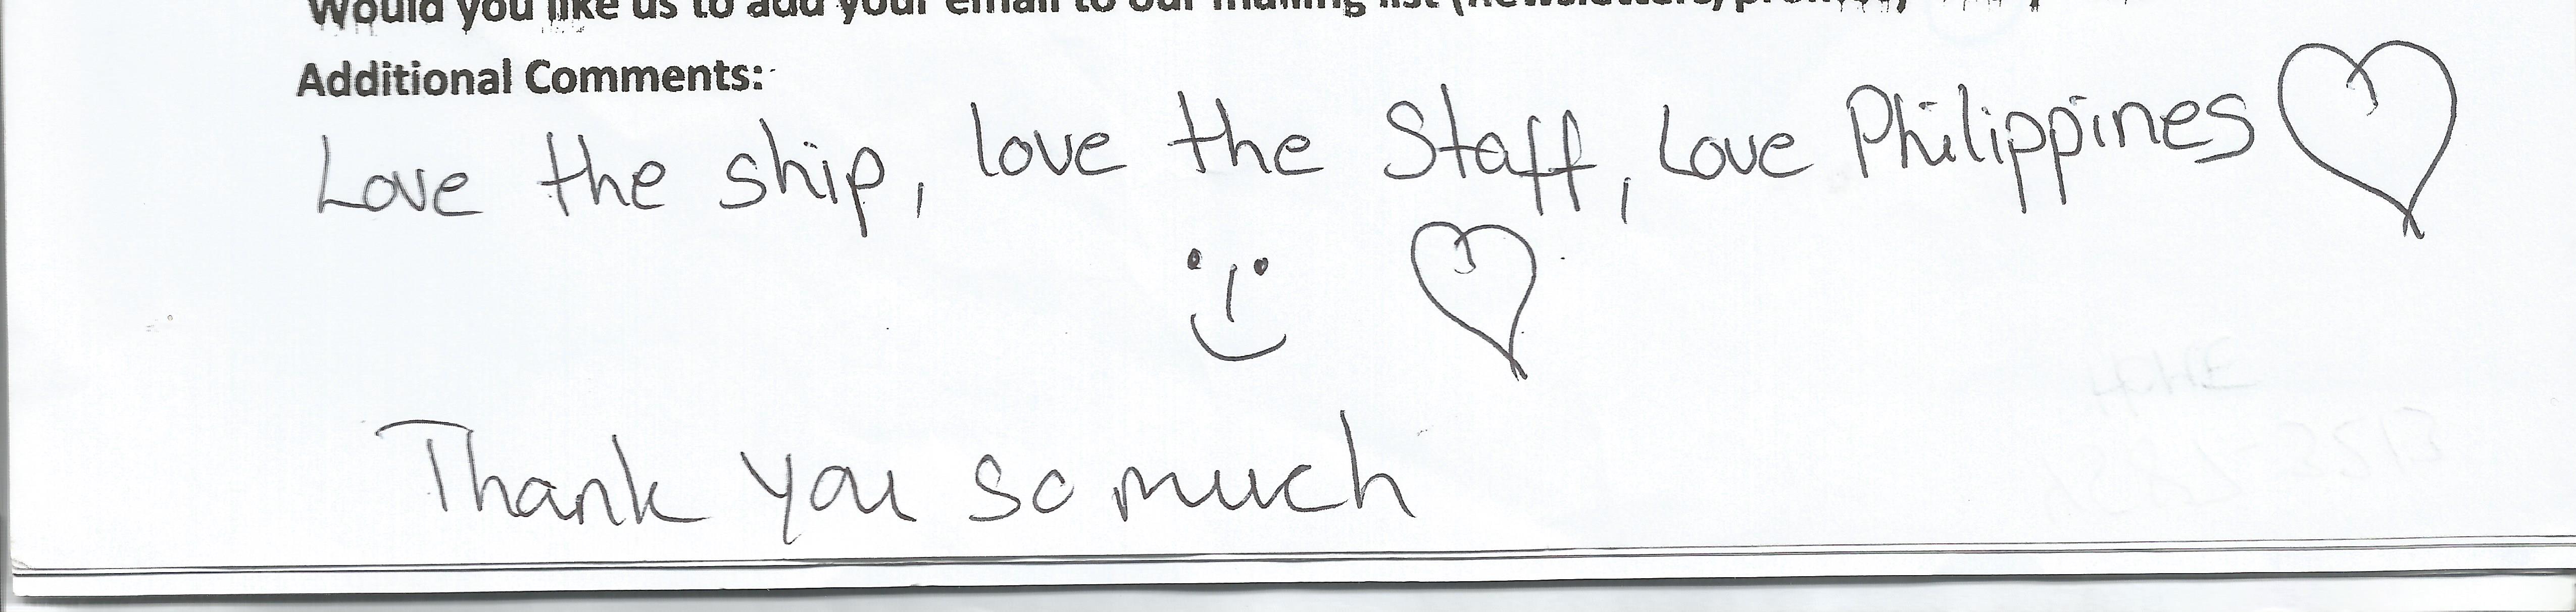 Would you like us to add your email to our mailing list (newsletters/promos)
Additional Comments:
Love the ship, love the Staff, Love Philippines
Thank you so much